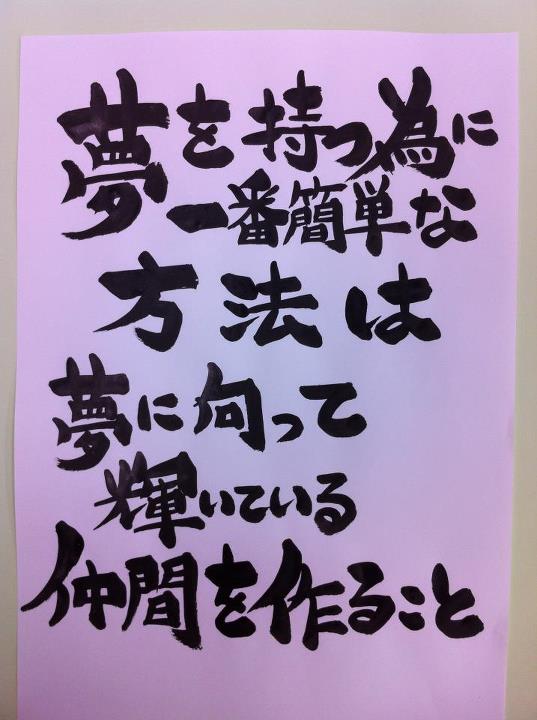 夢を持つ為に
一番簡単な
方法は
夢に向って
輝いている
仲間を作ること